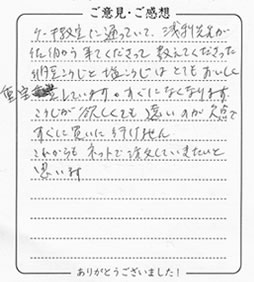 ご意見・ご感想
教室に通っていて、浅利先生が
佐伯から来てくださって教えてくださった
こうじと塩こうじはとてもおいしく
重宝しています。すぐになくなります。
こうじが欲しくても遠いのが欠点で
すぐに買いに行けません
これからもネットで注文していきたいと
思います
ありがとうございました!